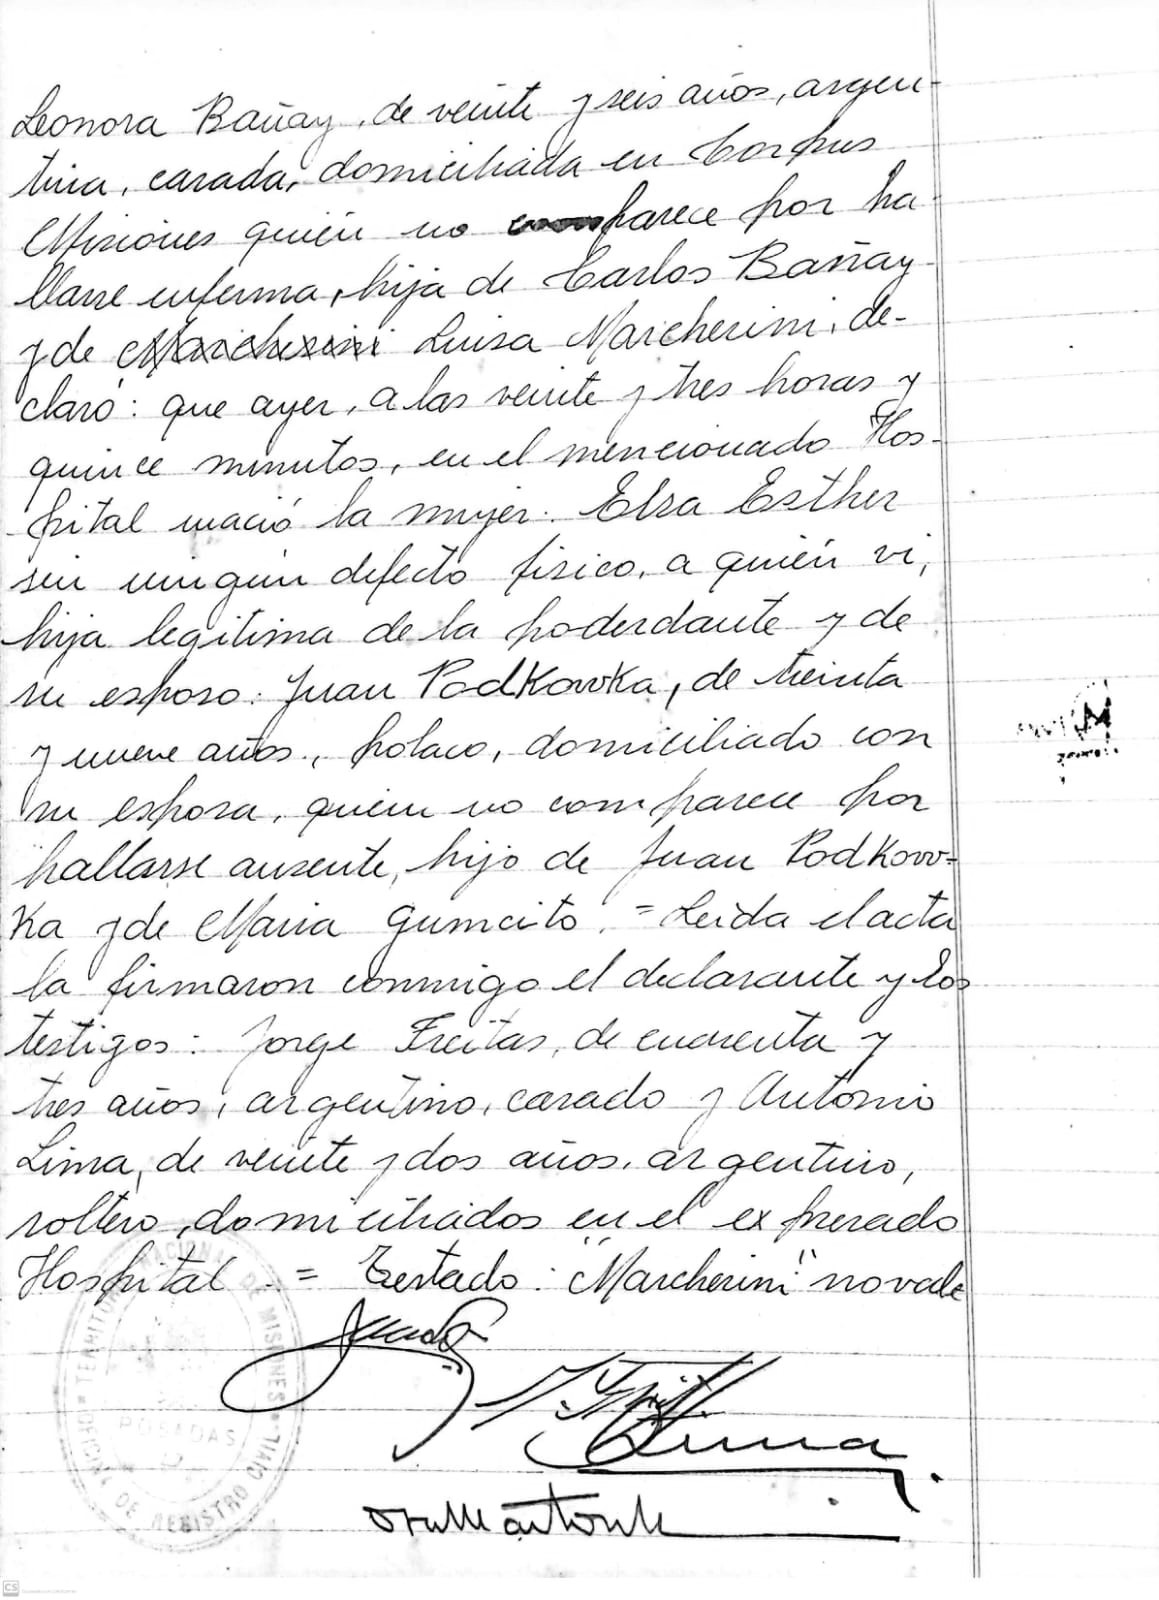 Leonora Bañay, de veinte y seis años, argen-
tina, casada, domiciliada en Corpus
Misiones quién no comparece por ha
llarse enferma, hija de Carlos Bañay
y de Marcherini Luisa Marcherini, de-
claró: que ayer, a las veinte y tres horas y
quince minutos, en el mencionado Hos-
pital nació la mujer: Elsa Esther
sin ningún defecto fisico, a quién vi,
hija legitima de la poderdante y de
su esposo: Juan Podkowka, de treinta
y nueve años, polaco, domiciliado con
su esposa, quien no comparece por
hallarse ausente, hijo de Juan Podkow-
ka y de Maria Gumcito. = Leida el acta
la firmaron conmigo el declarante y los
testigos: Jorge Freitas, de cuarenta y
tres años, argentino, casado y Antonio
Lima, de veinte y dos años, argentino,
soltero, domiciliados en el expresado
Hospital. = Testado: "Marcherini" no vale
TERRITORIO NACIONAL DE MISIONES
POSADAS
OFICINA DE REGISTRO CIVIL
CS